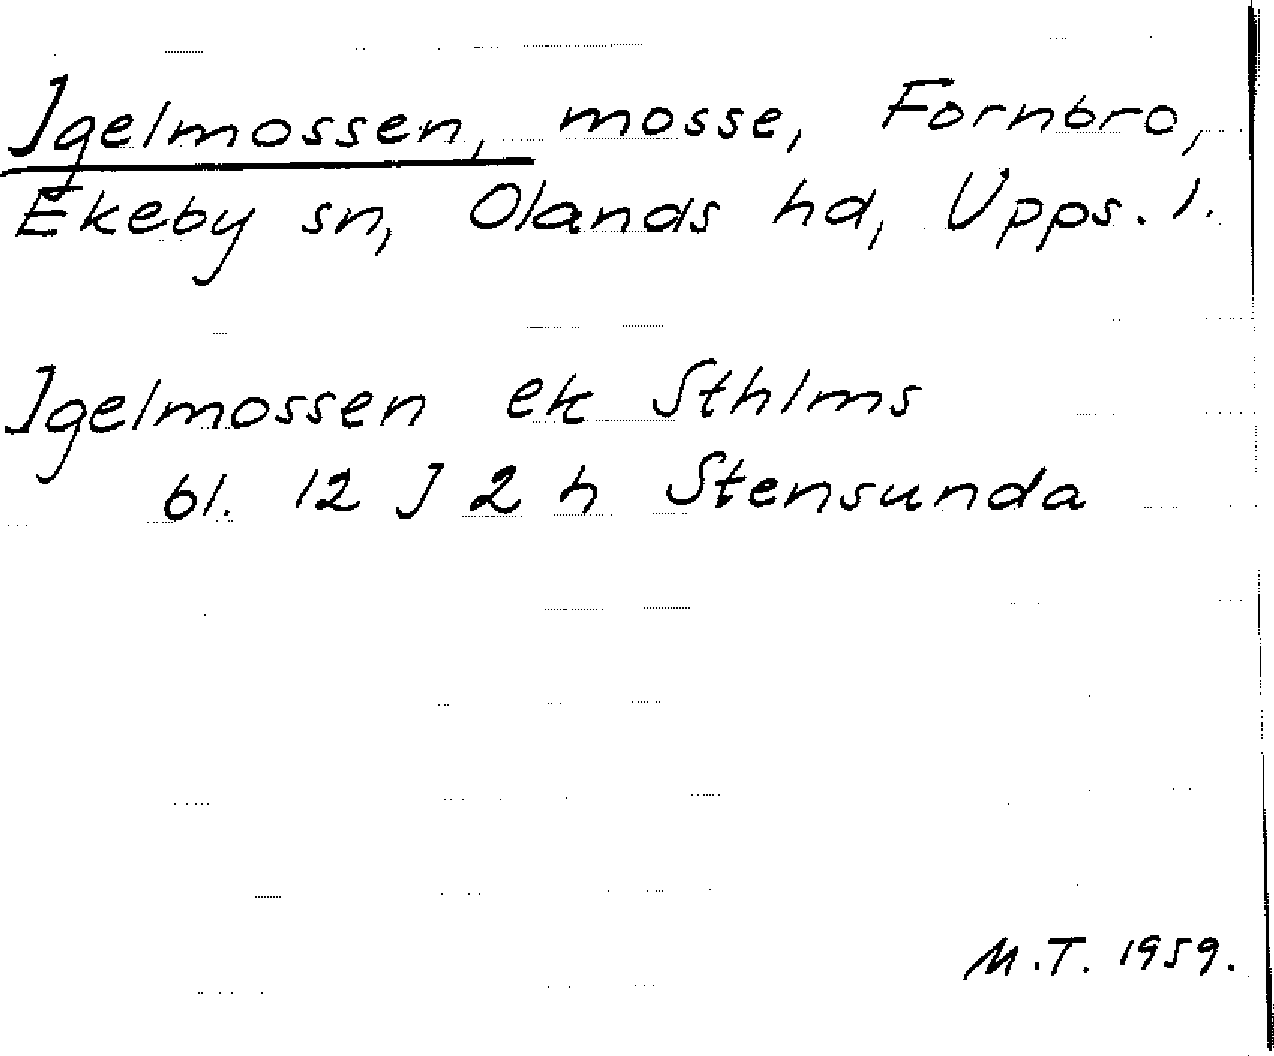 Igelmossen, mosse, Fornbro,
Ekeby sn, Olands hd, Upps. l.
Igelmossen ek Sthlms
bl. 12 J 2 h Stensunda
M.T. 1959.